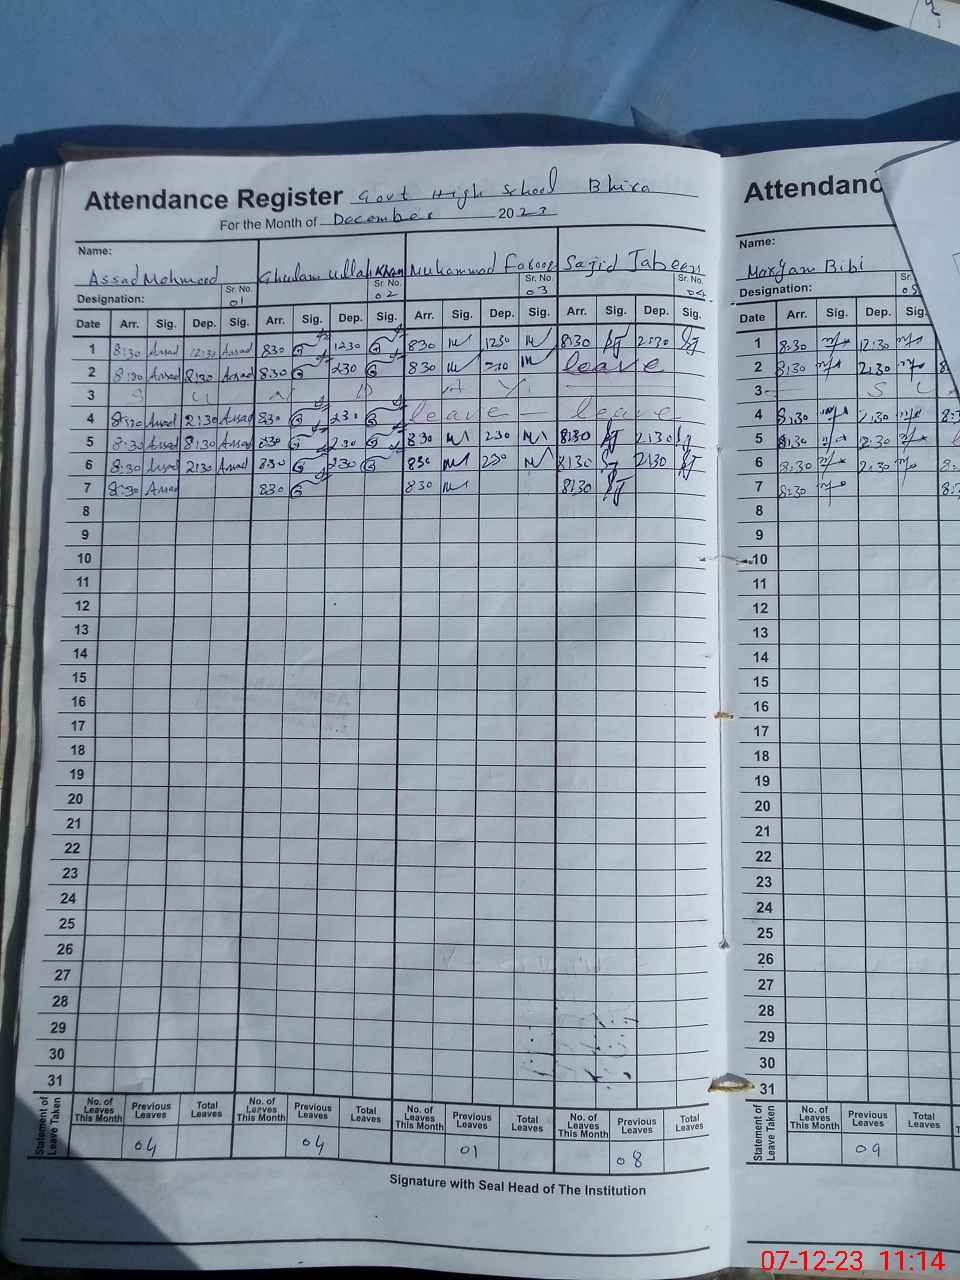 Attendance Register Govt High School Bhira
For the Month of December 2023
Name:
Assad Mehmood Ghulam ullah Khan Muhammad Farooq Sajid Jabeen
Designation: Sr. No. 01 Sr. No. 02 Sr. No. 03 Sr. No. 04
Date Arr. Sig. Dep. Sig. Arr. Sig. Dep. Sig. Arr. Sig. Dep. Sig. Arr. Sig. Dep. Sig.
1 8:30 Assad 12:30 Assad 830 1230 830 1230 8:30
2 8:30 Assad 8:30 Assad 8:30 230 830 230 leave
3 S U N D A Y
4 8:30 Assad 2:30 Assad 830 230 leave - leave
5 8:30 Assad 8:30 Assad 830 230 830 230 8:30 2:30
6 8:30 Assad 2:30 Assad 830 230 830 230 8:30 2:30
7 8:30 Assad 830 830 8:30
8
9
10
11
12
13
14
15
16
17
18
19
20
21
22
23
24
25
26
27
28
29
30
31
Statement of Leave Taken
No. of Leaves This Month Previous Leaves Total Leaves No. of Leaves This Month Previous Leaves Total Leaves No. of Leaves This Month Previous Leaves Total Leaves No. of Leaves This Month Previous Leaves Total Leaves
04 04 01 08
Signature with Seal Head of The Institution
Attendanc
Name:
Maryam Bibi
Designation: Sr. 05
Date Arr. Sig. Dep. Sig.
1 8:30 12:30
2 8:30 2:30
3 S U
4 8:30 2:30
5 8:30 12:30
6 8:30 2:30
7 8:30
8
9
10
11
12
13
14
15
16
17
18
19
20
21
22
23
24
25
26
27
28
29
30
31
Statement of Leave Taken
No. of Leaves This Month Previous Leaves Total Leaves
09
07-12-23 11:14